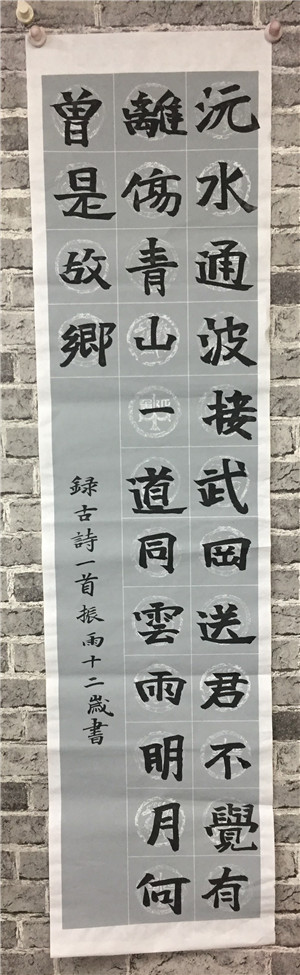 沅水通波接武岡送君不覺有
離傷青山一道同雲雨明月何
曾是故鄉
録古詩一首振雨十二歲書